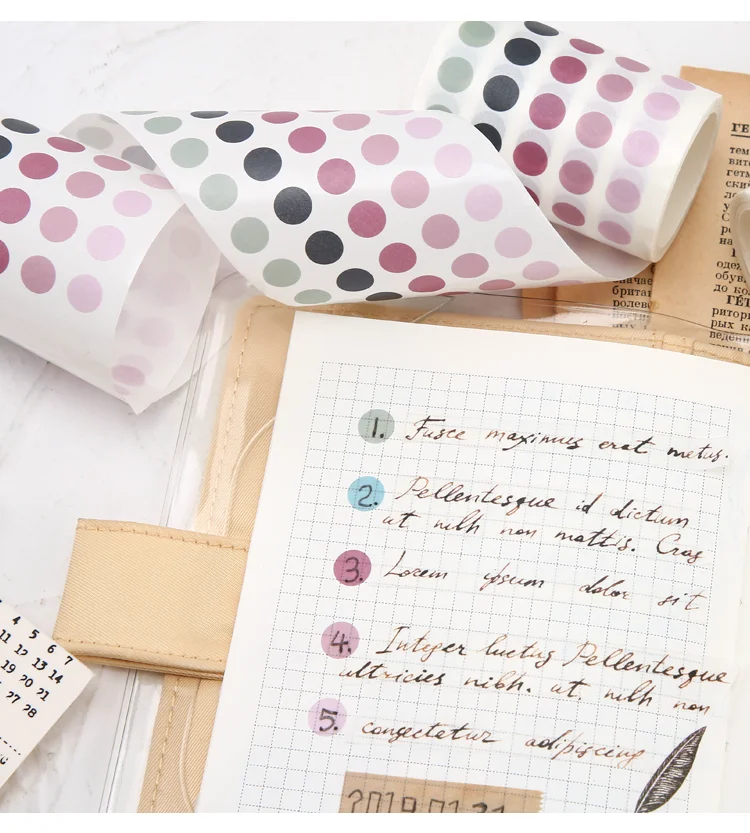 1. Fusce maximus erat metus.
2. Pellentesque id dictum
at nibh non mattis. Cras
3. Lorem ipsum dolor sit
4. Integer luctus Pellentesque
ultricies nibh. at. nibh non
5. consectetur adipiscing
2019.01.31
4 5 6 7
11 12 13 14
19 20 21
27 28